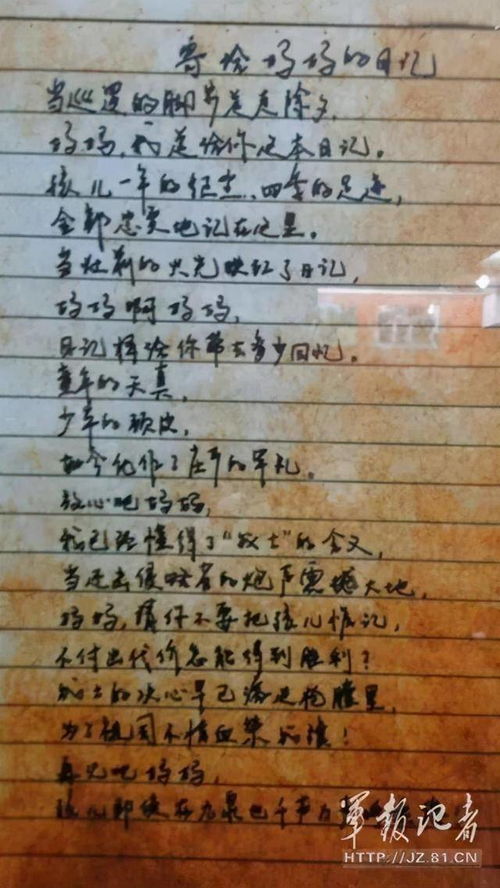 寄给妈妈的日记
当巡逻的脚步走进除夕,
妈妈,我送给你这本日记。
孩儿一年的 四季的足迹,
全部忠实地记在这里。
当灶前的火光映红了日记,
妈妈啊妈妈,
日记将给你带去多少回忆。
童年的天真,
少年的顽皮,
如今化作了庄严的军礼。
放心吧妈妈,
我已经懂得了“战士”的含义,
当还击侵略者的炮声震撼大地,
妈妈,请你不要把孩儿惦记,
不付出代价怎能得到胜利?
战士的决心早已溶进枪膛里,
为了祖国不惜血染战旗!
再见吧妈妈,
孩儿即使在九泉也千声万
軍報记者
HTTP://JZ.81.CN